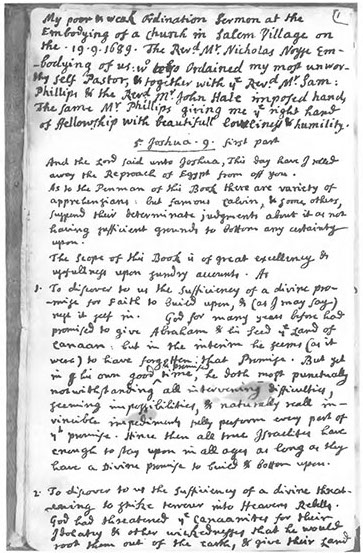 My poor & weak Ordination Sermon at the
Embodying of a Church in Salem Village on
the 19.9.1689. The Revd Mr. Nicholas Noyse Em-
bodying of us: who also Ordained my most unwor-
thy self Pastor, & together with ye Revd Mr. Sam:
Phillips & the Revd Mr. John Hale imposed hands
The same Mr. Phillips giving me ye right hand
of fellowship with beautifull loveliness & humility.
5 Joshua. 9. first part
And the Lord said unto Joshua, This day have I roled
away the Reproach of Egypt from off you.
As to the Penman of this Book there are variety of
apprehensions: but famous Calvin, & some others,
suspend their determinate judgments about it as not
having sufficient grounds to bottom any certainty
upon.
The Scope of this Book is of great excellency &
usefulness upon sundry accounts. As
1. To discover to us the Sufficiency of a divine pro-
mise for Faith to build upon, & (as I may say)
rest it self in. God for many years before had
promised to give Abraham & his Seed ye Land of
Canaan: but in the interim he seems (as it
were) to have forgotten that Promise. But yet
in his own good time, he doth most punctually
notwithstanding all intervening difficulties,
seeming impossibilities, & naturally in-
vincible impediments fully perform every part of
yt promise. Hence then all true Israelites have
enough to stay upon in all ages as long as they
have a Divine promise to build & bottom upon.
2. To discover to us the Sufficiency of a divine threat-
ening to strike terrour into Heavens Rebells.
God had threatened ye Canaanites for their
Idolatry & other wickednesses that he would
root them out of the earth, & give their Land